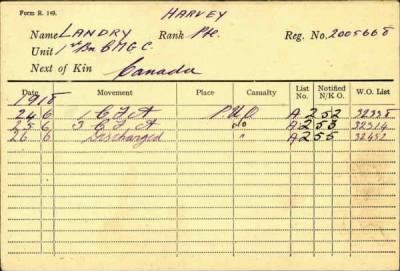 Form R. 149.
HARVEY
Name LANDRY Rank Pte. Reg. No. 2005668
Unit 1st Bn C.M.G.C.
Next of Kin Canada
Date Movement Place Casualty List No. Notified N/K O. W.O. List
1918
24 6 1 C F A P.U.O. A 252
25 6 3 C F A Do A 253 32314
26 6 Discharged " A 255